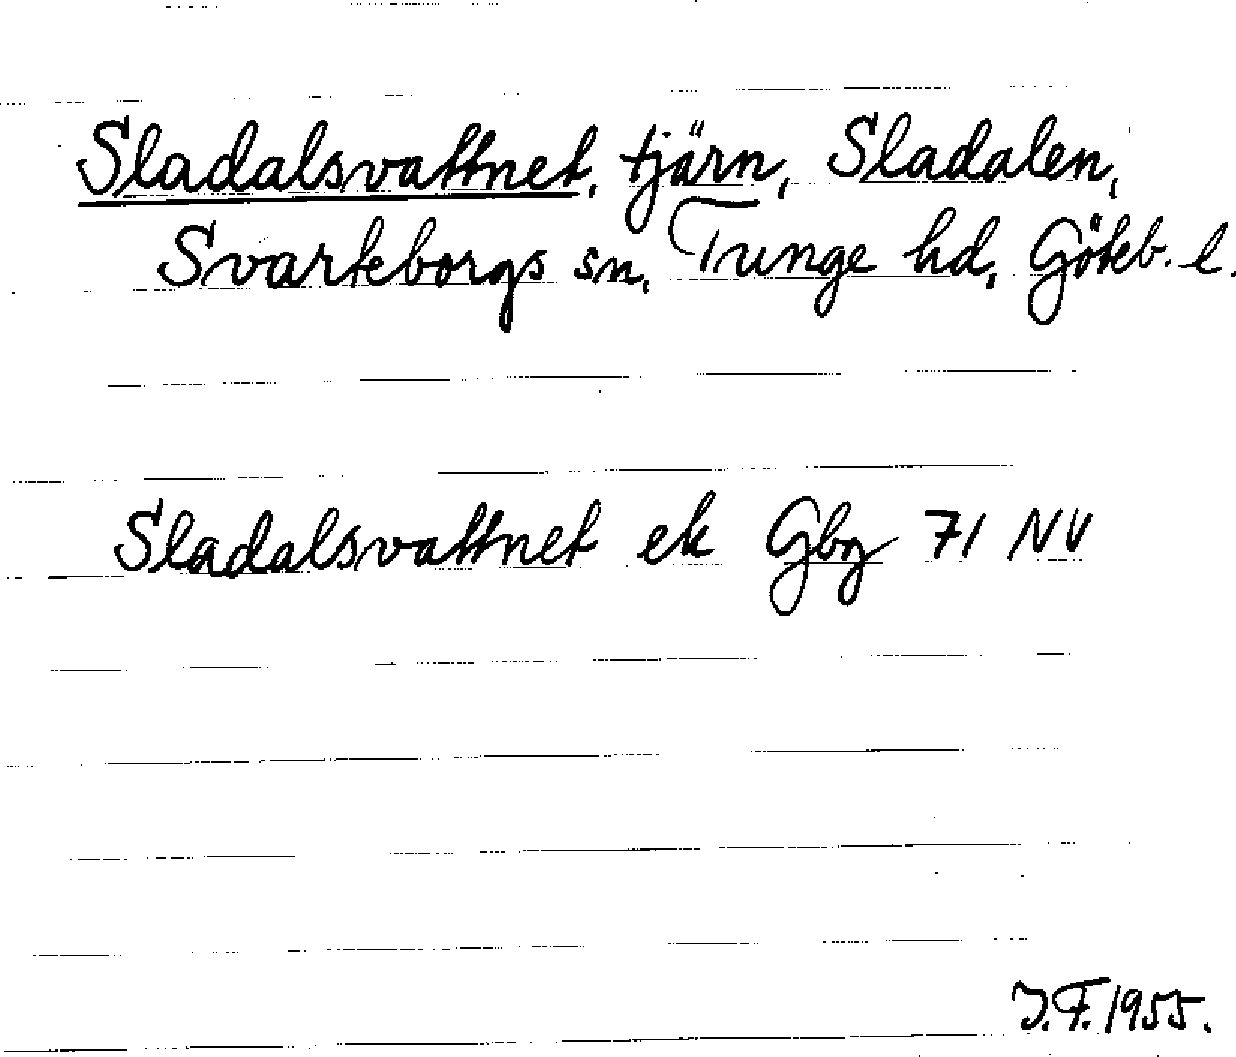 Sladalsvattnet, tjärn, Sladalen,
Svarteborgs sn, Tunge hd, Göteb. l.
Sladalsvattnet ek Gbg 71 NV
J.F. 1955.